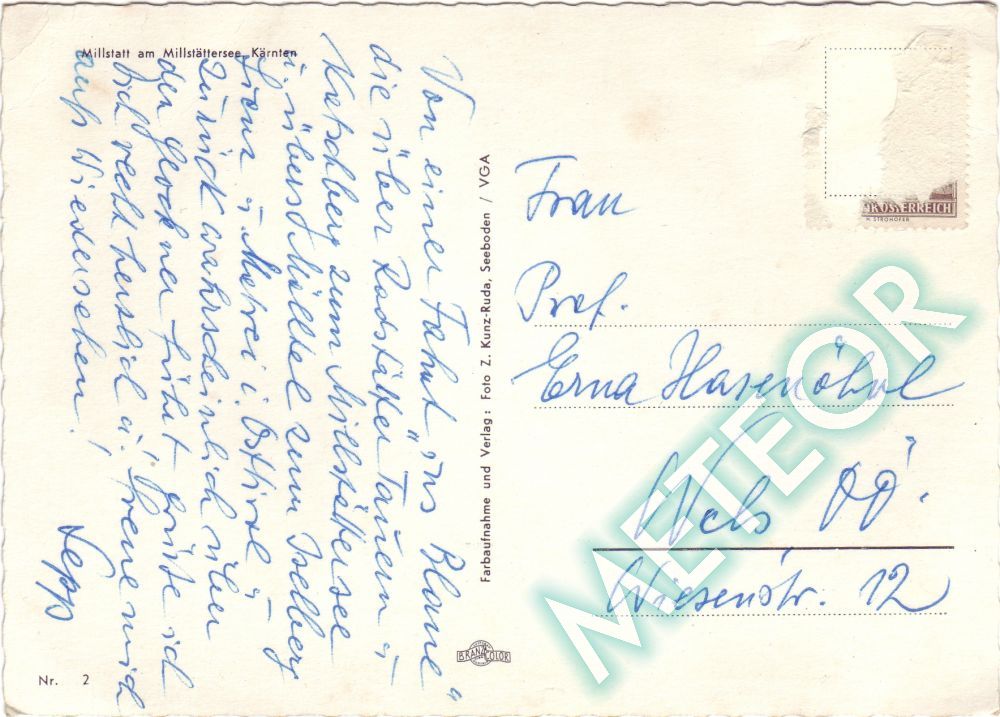 Millstatt am Millstättersee, Kärnten
Von einer Fahrt "ins Blaue"
die über Radstätter Tauern u.
Katschberg zum Millstättersee
u. übers Mölltal zum Iselberg
Lienz u. Matrei i. Osttirol u.
zurück wahrscheinlich über
den Glockner führt grüße ich
Dich recht herzlich u. freue mich
aufs Wiedersehen!
Sepp
Nr. 2
Farbaufnahme und Verlag: Foto Z. Kunz-Ruda, Seeboden / VGA
BRANZ COLOR
K ÖSTERREICH
H. STROHOFER
Frau
Prof.
Erna Hasenöhrl
Wels OÖ.
Wiesenstr. 12
METEOR